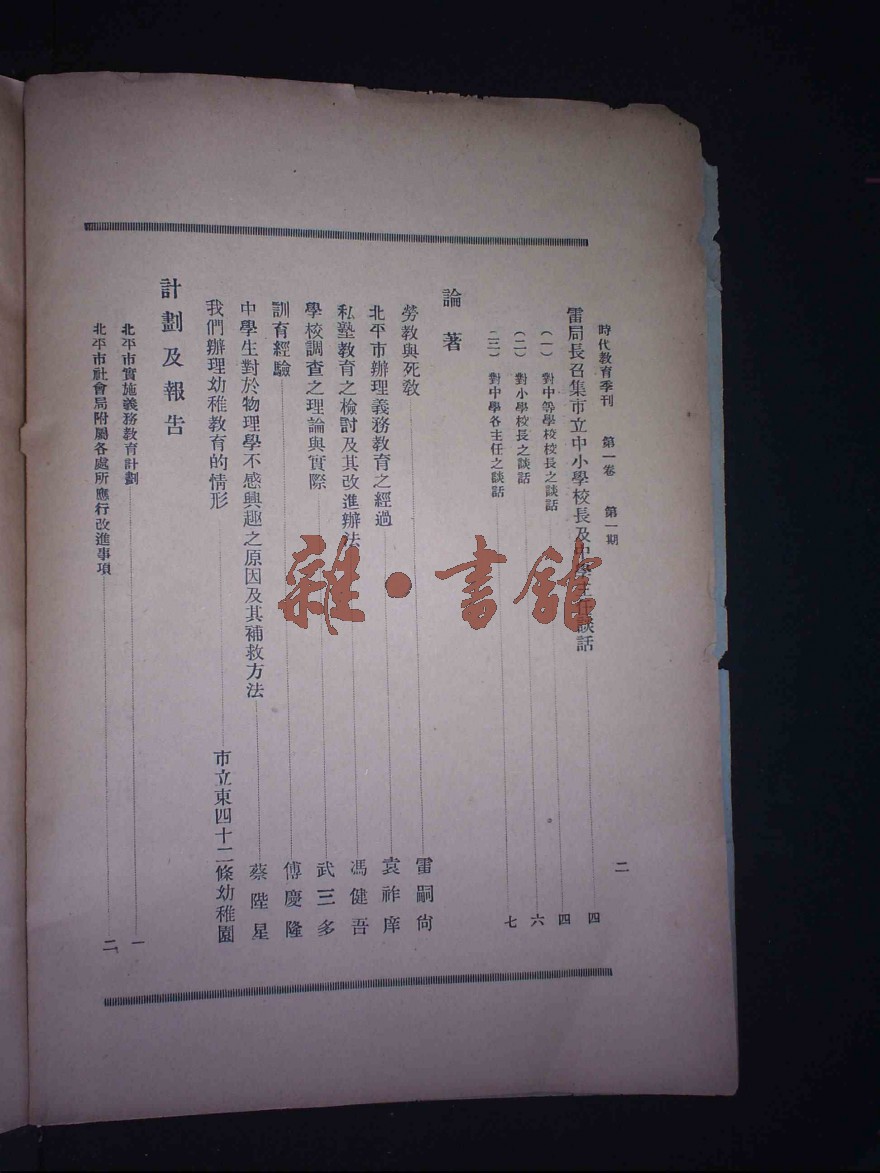 時代教育季刊 第一卷 第一期 二
雷局長召集市立中小學校長及中學主任談話 四
(一) 對中等學校校長之談話 四
(二) 對小學校長之談話 六
(三) 對中學各主任之談話 七
論著
勞教與死教 雷嗣尙
北平市辦理義務教育之經過 袁祚庠
私塾教育之檢討及其改進辦法 馮健吾
學校調查之理論與實際 武三多
訓育經驗 傅慶隆
中學生對於物理學不感興趣之原因及其補救方法 蔡陛星
我們辦理幼稚教育的情形 市立東四十二條幼稚園
計劃及報告
北平市實施義務教育計劃 一
北平市社會局附屬各處所應行改進事項 二
雜·書館